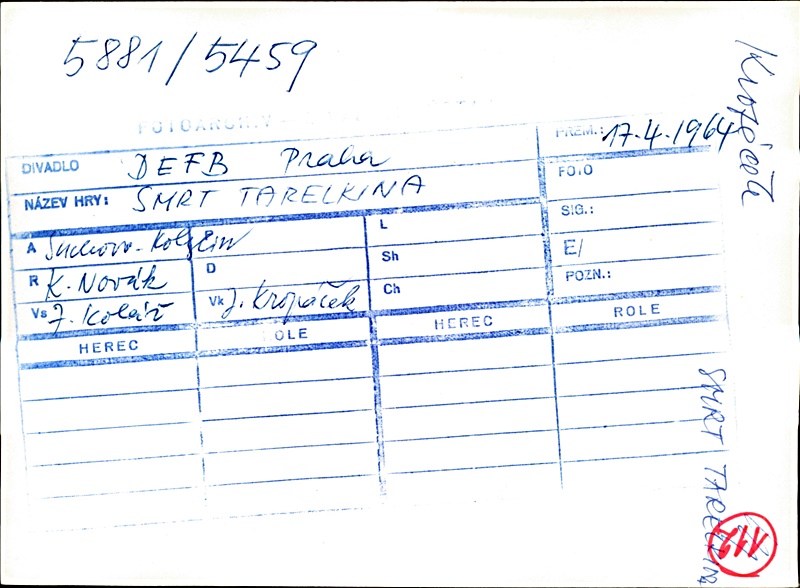 5881/5459
FOTOARCHIV
DIVADLO DEFB Praha
PREM.: 17.4.1964
NÁZEV HRY: SMRT TARELKINA
FOTO
SIG.:
E/
POZN.:
A Suchovo-Kobylin
L
R K. Novák
D
Sh
Vs J. Kolář
Vk J. Kropáček
Ch
HEREC ROLE HEREC ROLE
Kropáček
SMRT TARELKINA
112